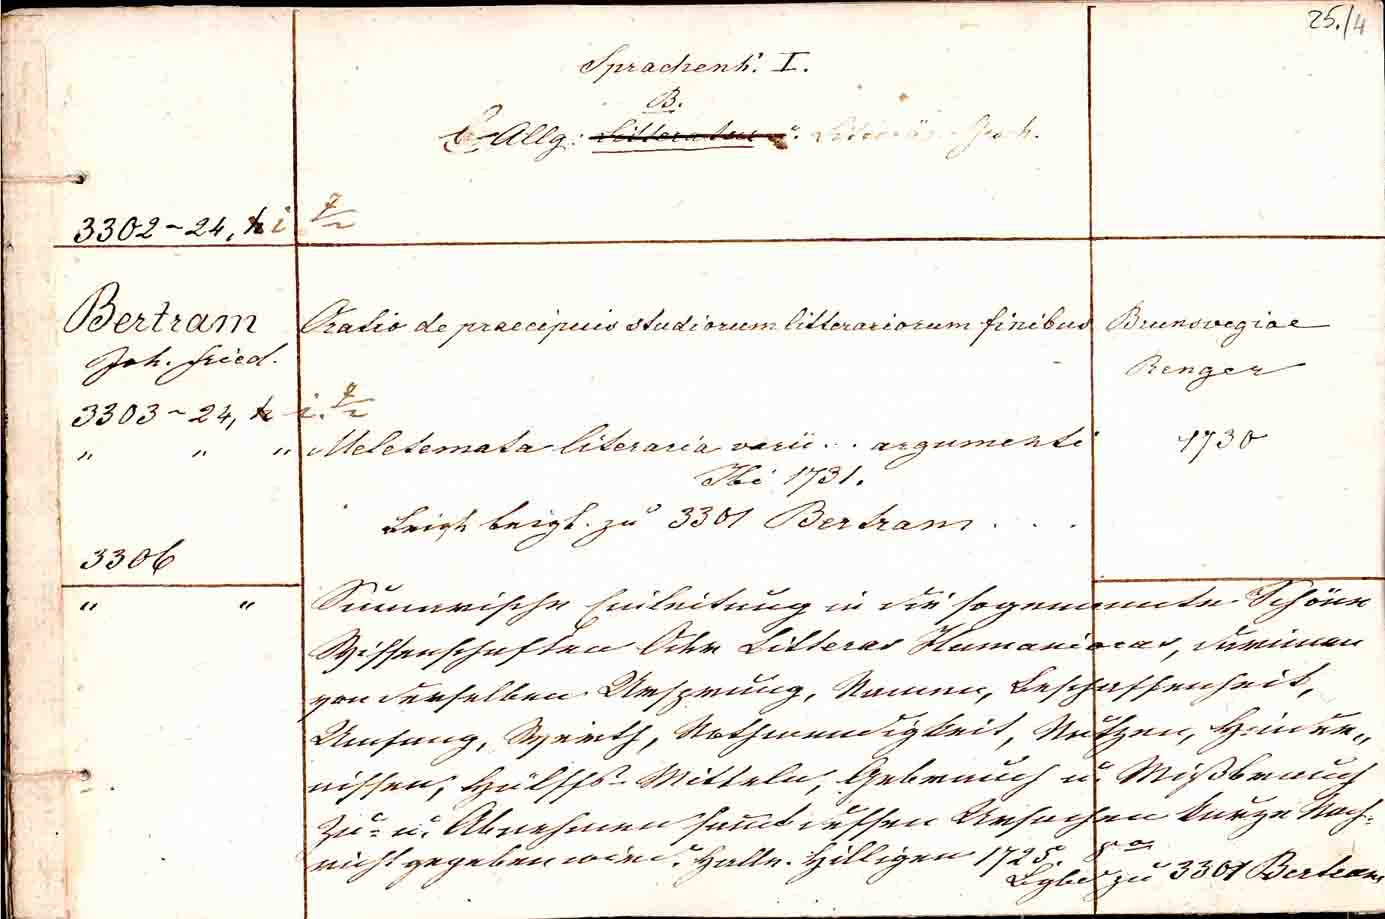 25./4
Sprachenk. I.
B.
Allg: Litteratur u. Literär. Gesch.
3302-24, k i 7/2
Bertram Oratio de praecipuis studiorum litterariorum finibus Brunsvegiae
Joh. Fried. Renger
3303-24, k i. 7/2
" " " Meletemata literaria varii .. argumenti 1730
Ibi 1731.
beigb. zu 3301 Bertram . . .
3306
" " Summarische Einleitung in die sogenannte Schöne
Wissenschaften Oder Litteras Humaniores, darinnen
von derselben Ursprung, Namen, Beschaffenheit,
Umfang, Werth, Nothwendigkeit, Nutzen, Hinder„
nissen, Hülffs-Mitteln, Gebrauch u. Mißbrauch
Zu- u. Abnehmen samt dessen Ursachen kurze Nach-
richt gegeben wird. Halle. Hilligen 1725. 8°
Bgbd zu 3301 Bertram